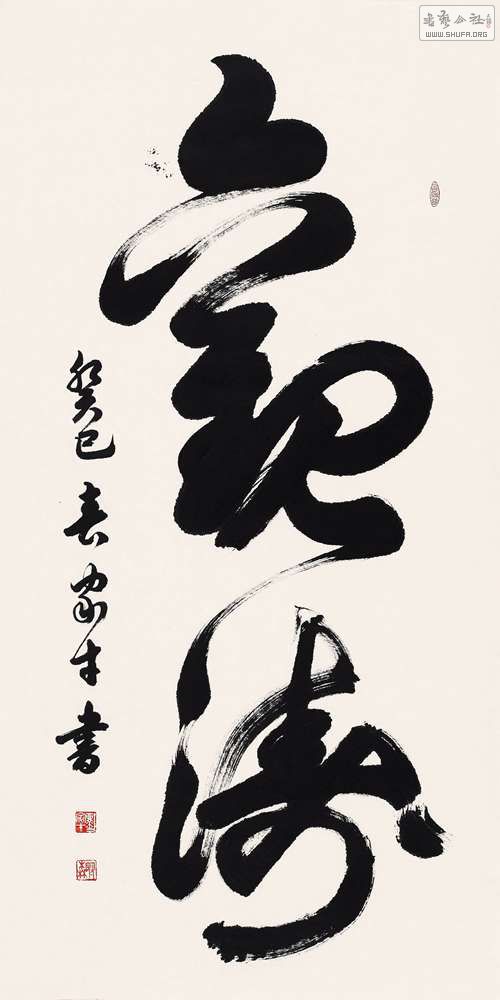 書藝公社
WWW.SHUFA.ORG
觀濤
癸巳春家才書